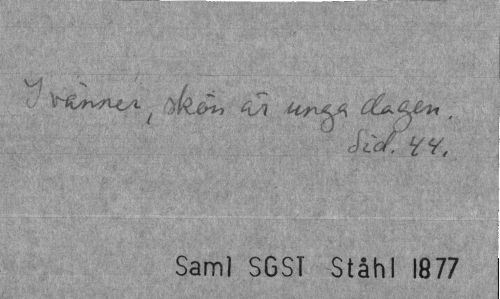 I vänner, skön är unga dagen.
Sid. 44.
Saml SGST Ståhl 1877